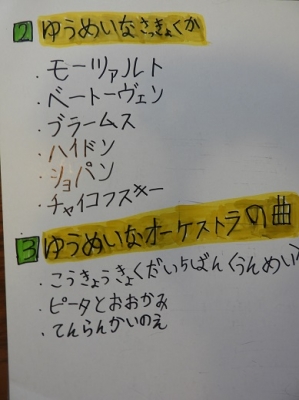 2 ゆうめいなさっきょくか
・モーツァルト
・ベートーヴェン
・ブラームス
・ハイドン
・ショパン
・チャイコフスキー
3 ゆうめいなオーケストラの曲
・こうきょうきょくだい5ばん(うんめい)
・ピータとおおかみ
・てんらんかいのえ